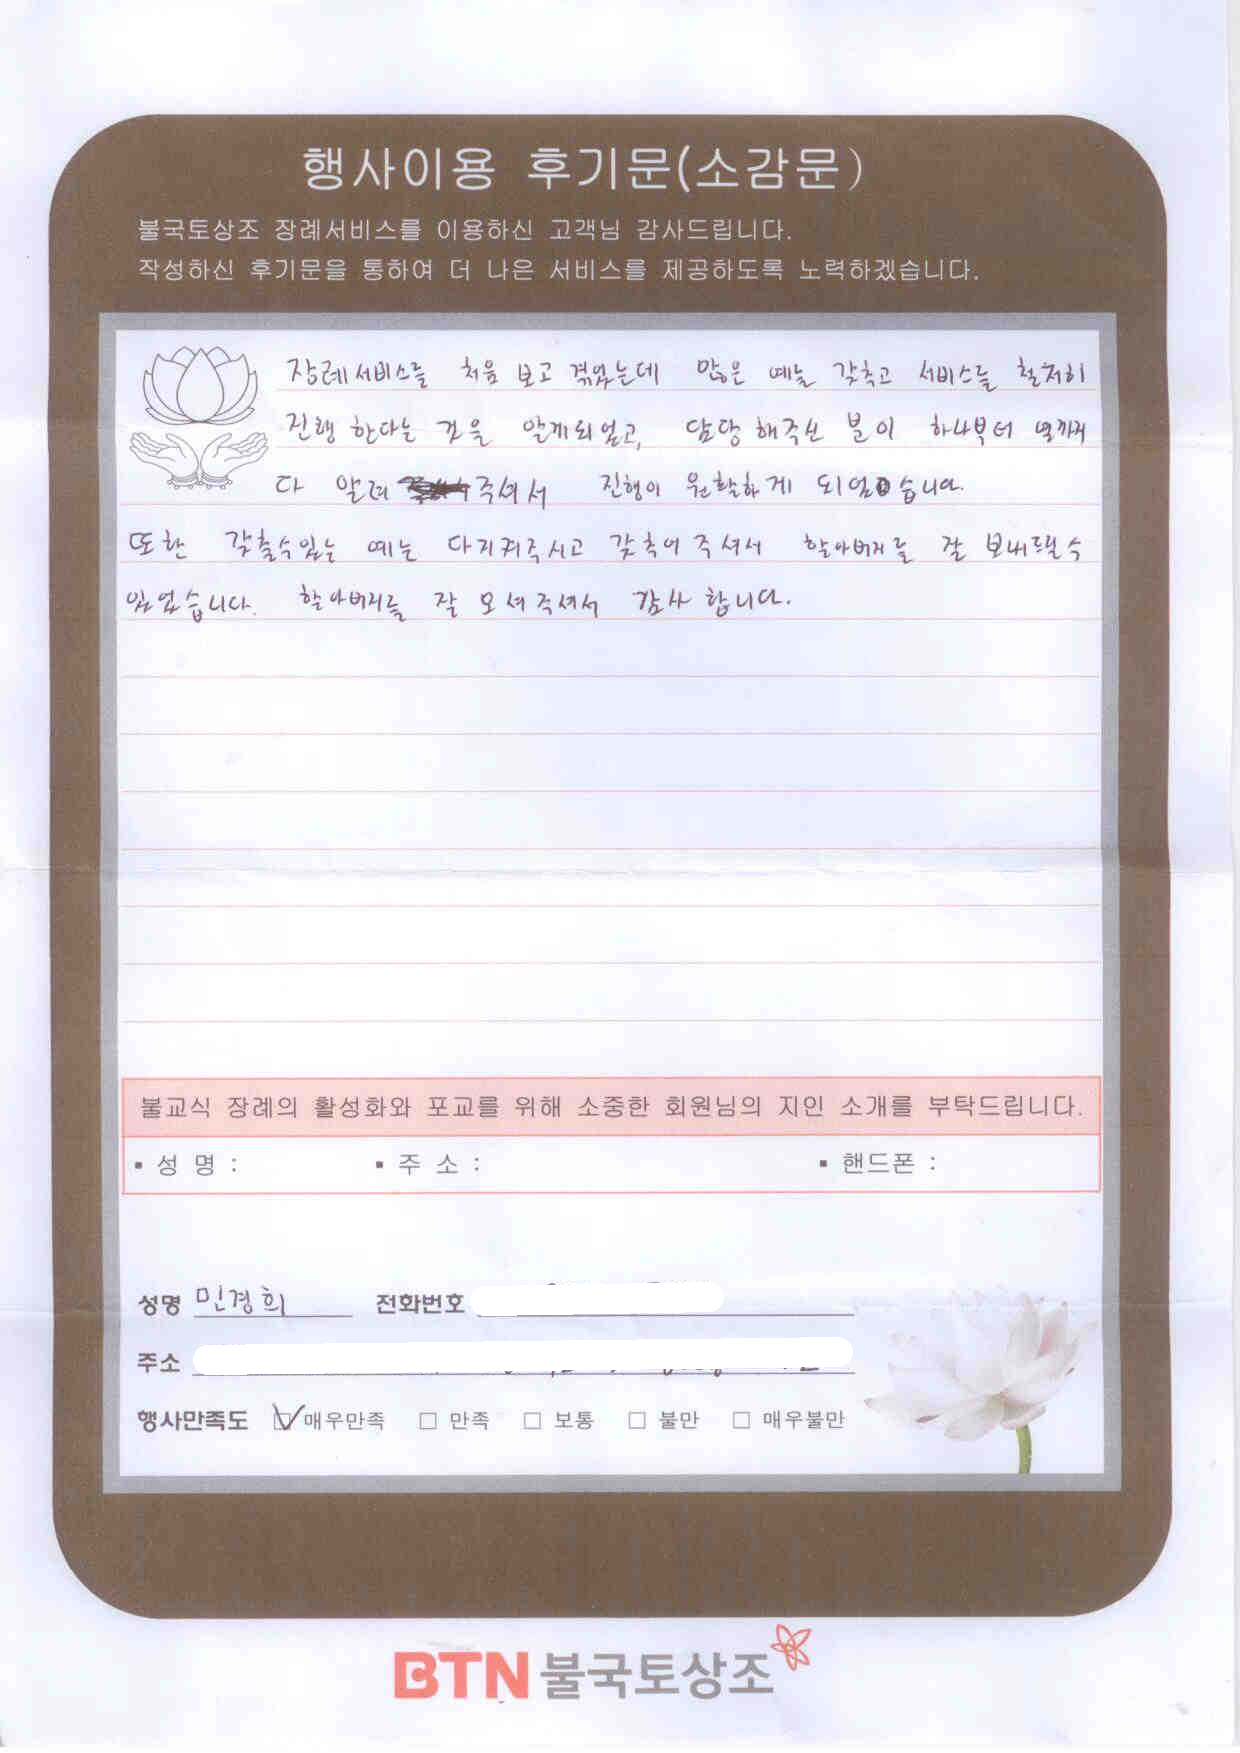 행사이용 후기문(소감문)
불국토상조 장례서비스를 이용하신 고객님 감사드립니다.
작성하신 후기문을 통하여 더 나은 서비스를 제공하도록 노력하겠습니다.
장례서비스를 처음 보고 겪었는데 많은 예를 갖추고 서비스를 철저히
진행 한다는 것을 알게되었고, 담당 해주신 분이 하나부터 열까지
다 알려 주셔서 진행이 원활하게 되었습니다.
또한 갖출수있는 예는 다지켜주시고 갖추어 주셔서 할아버지를 잘 보내드릴 수
있었습니다. 할아버지를 잘 모셔주셔서 감사 합니다.
불교식 장례의 활성화와 포교를 위해 소중한 회원님의 지인 소개를 부탁드립니다.
▪ 성 명 : ▪ 주 소 : ▪ 핸드폰 :
성명 민경희 전화번호
주소
행사만족도 ☑ 매우만족 □ 만족 □ 보통 □ 불만 □ 매우불만
BTN 불국토상조